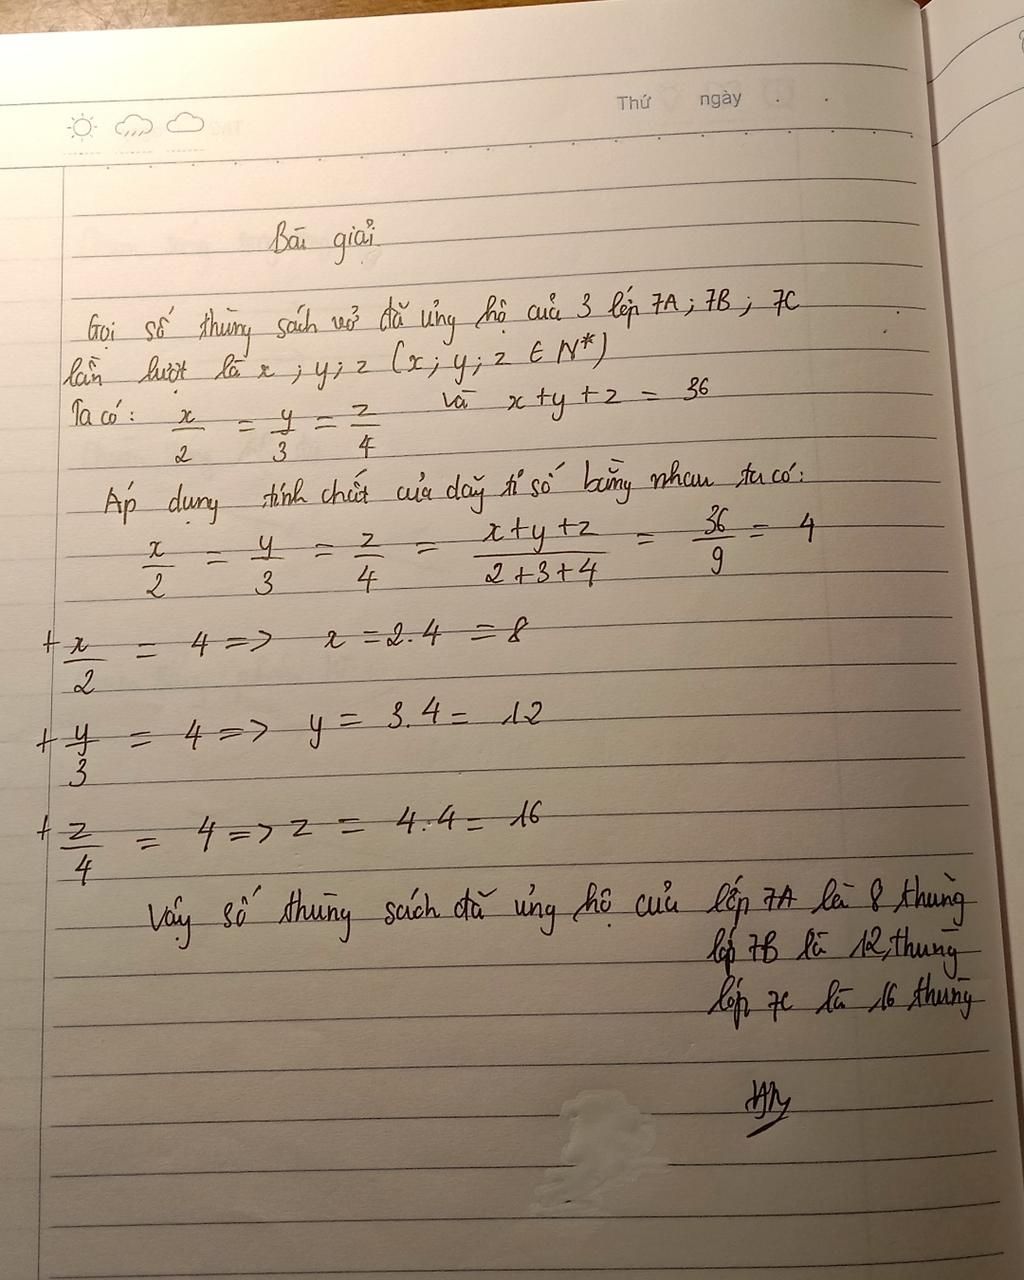 Thứ ngày
Bài giải
Gọi số thùng sách vở đã ủng hộ của 3 lớp 7A; 7B; 7C
lần lượt là x; y; z (x; y; z ∈ N*)
Ta có: x/2 = y/3 = z/4 và x + y + z = 36
Áp dụng tính chất của dãy tỉ số bằng nhau ta có:
x/2 = y/3 = z/4 = (x+y+z)/(2+3+4) = 36/9 = 4
+ x/2 = 4 => x = 2.4 = 8
+ y/3 = 4 => y = 3.4 = 12
+ z/4 = 4 => z = 4.4 = 16
Vậy số thùng sách đã ủng hộ của lớp 7A là 8 thùng
lớp 7B là 12 thùng
lớp 7C là 16 thùng